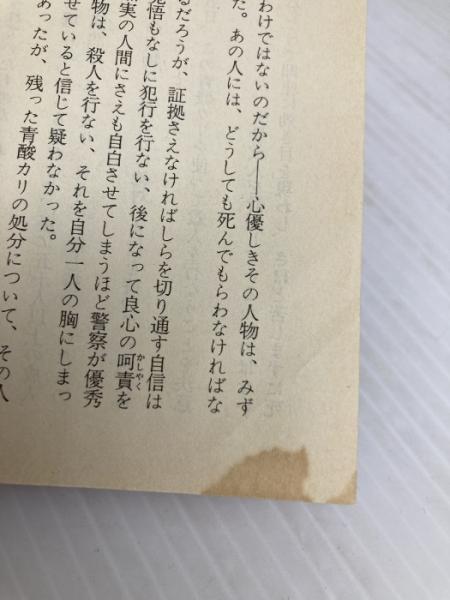 わけではないのだから――心優しきその人物は、みず
た。あの人には、どうしても死んでもらわなければな
るだろうが、証拠さえなければしらを切り通す自信は
覚悟もなしに犯行を行ない、後になって良心の呵責を
かしやく
実の人間にさえも自白させてしまうほど警察が優秀
物は、殺人を行ない、それを自分一人の胸にしまっ
せていると信じて疑わなかった。
あったが、残った青酸カリの処分について、その人